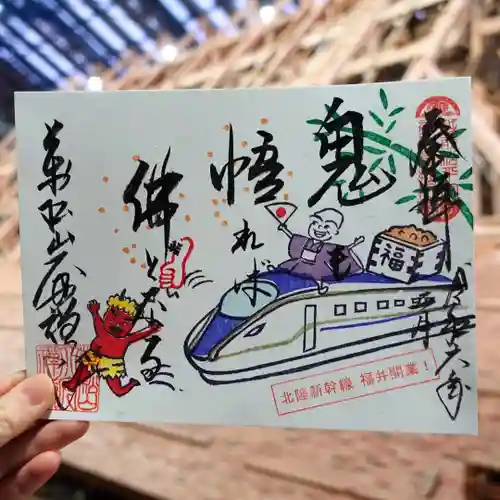 奉拝
令和六年
鬼も
悟れば
佛となる
萬松山
福
北陸新幹線 福井開業！